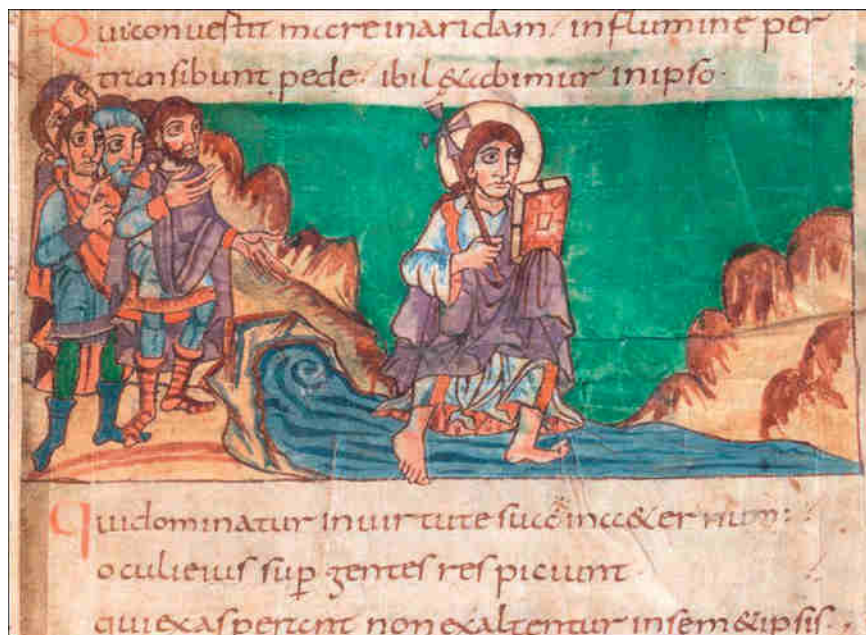 Qui conuertit mare in aridam · in flumine per
transibunt pede · ibi l&abimur in ipso ·
qui dominatur in uirtute sua in a&ernum :
oculi eius sup̄ gentes respiciunt
qui exasperant non exaltentur in sem&ipsis .